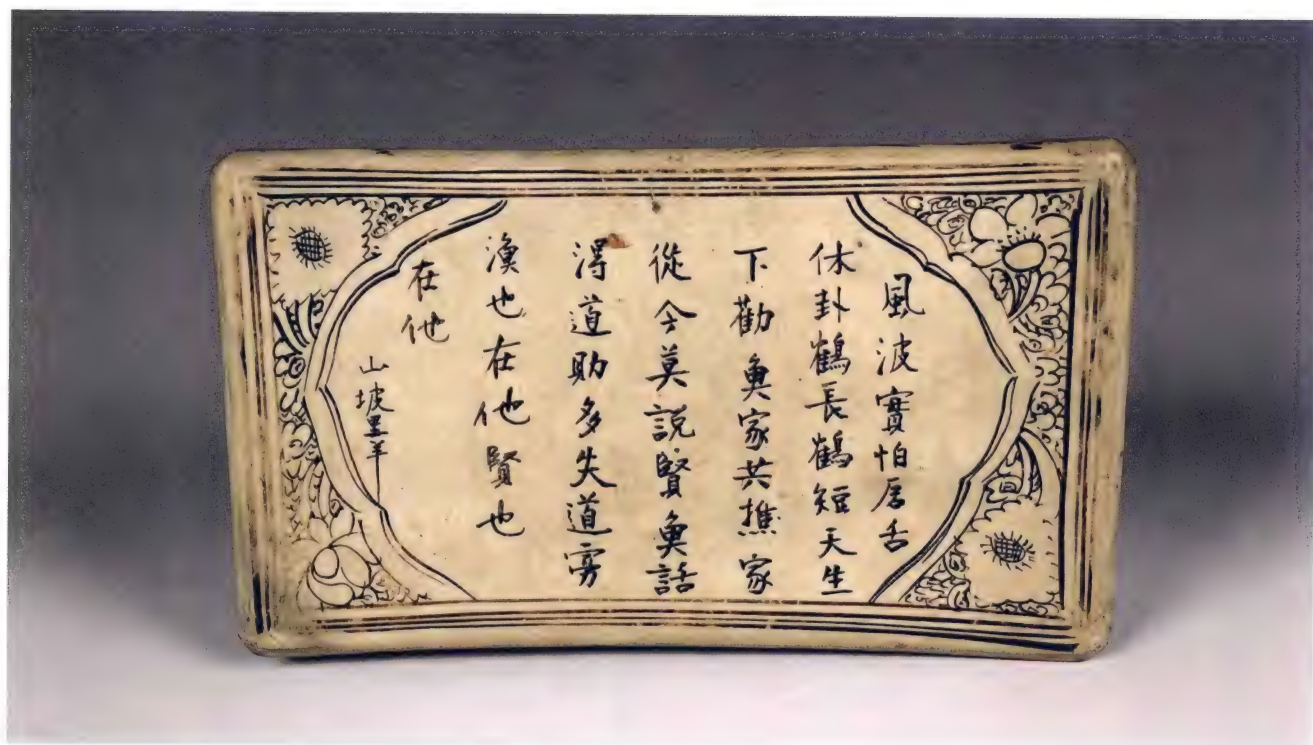 風波實怕唇舌
休卦鶴長鶴短天生
下勸奐家共樵家
從今莫說賢奐話
淂道助多失道寡
渙也在他賢也
在他
山坡里羊